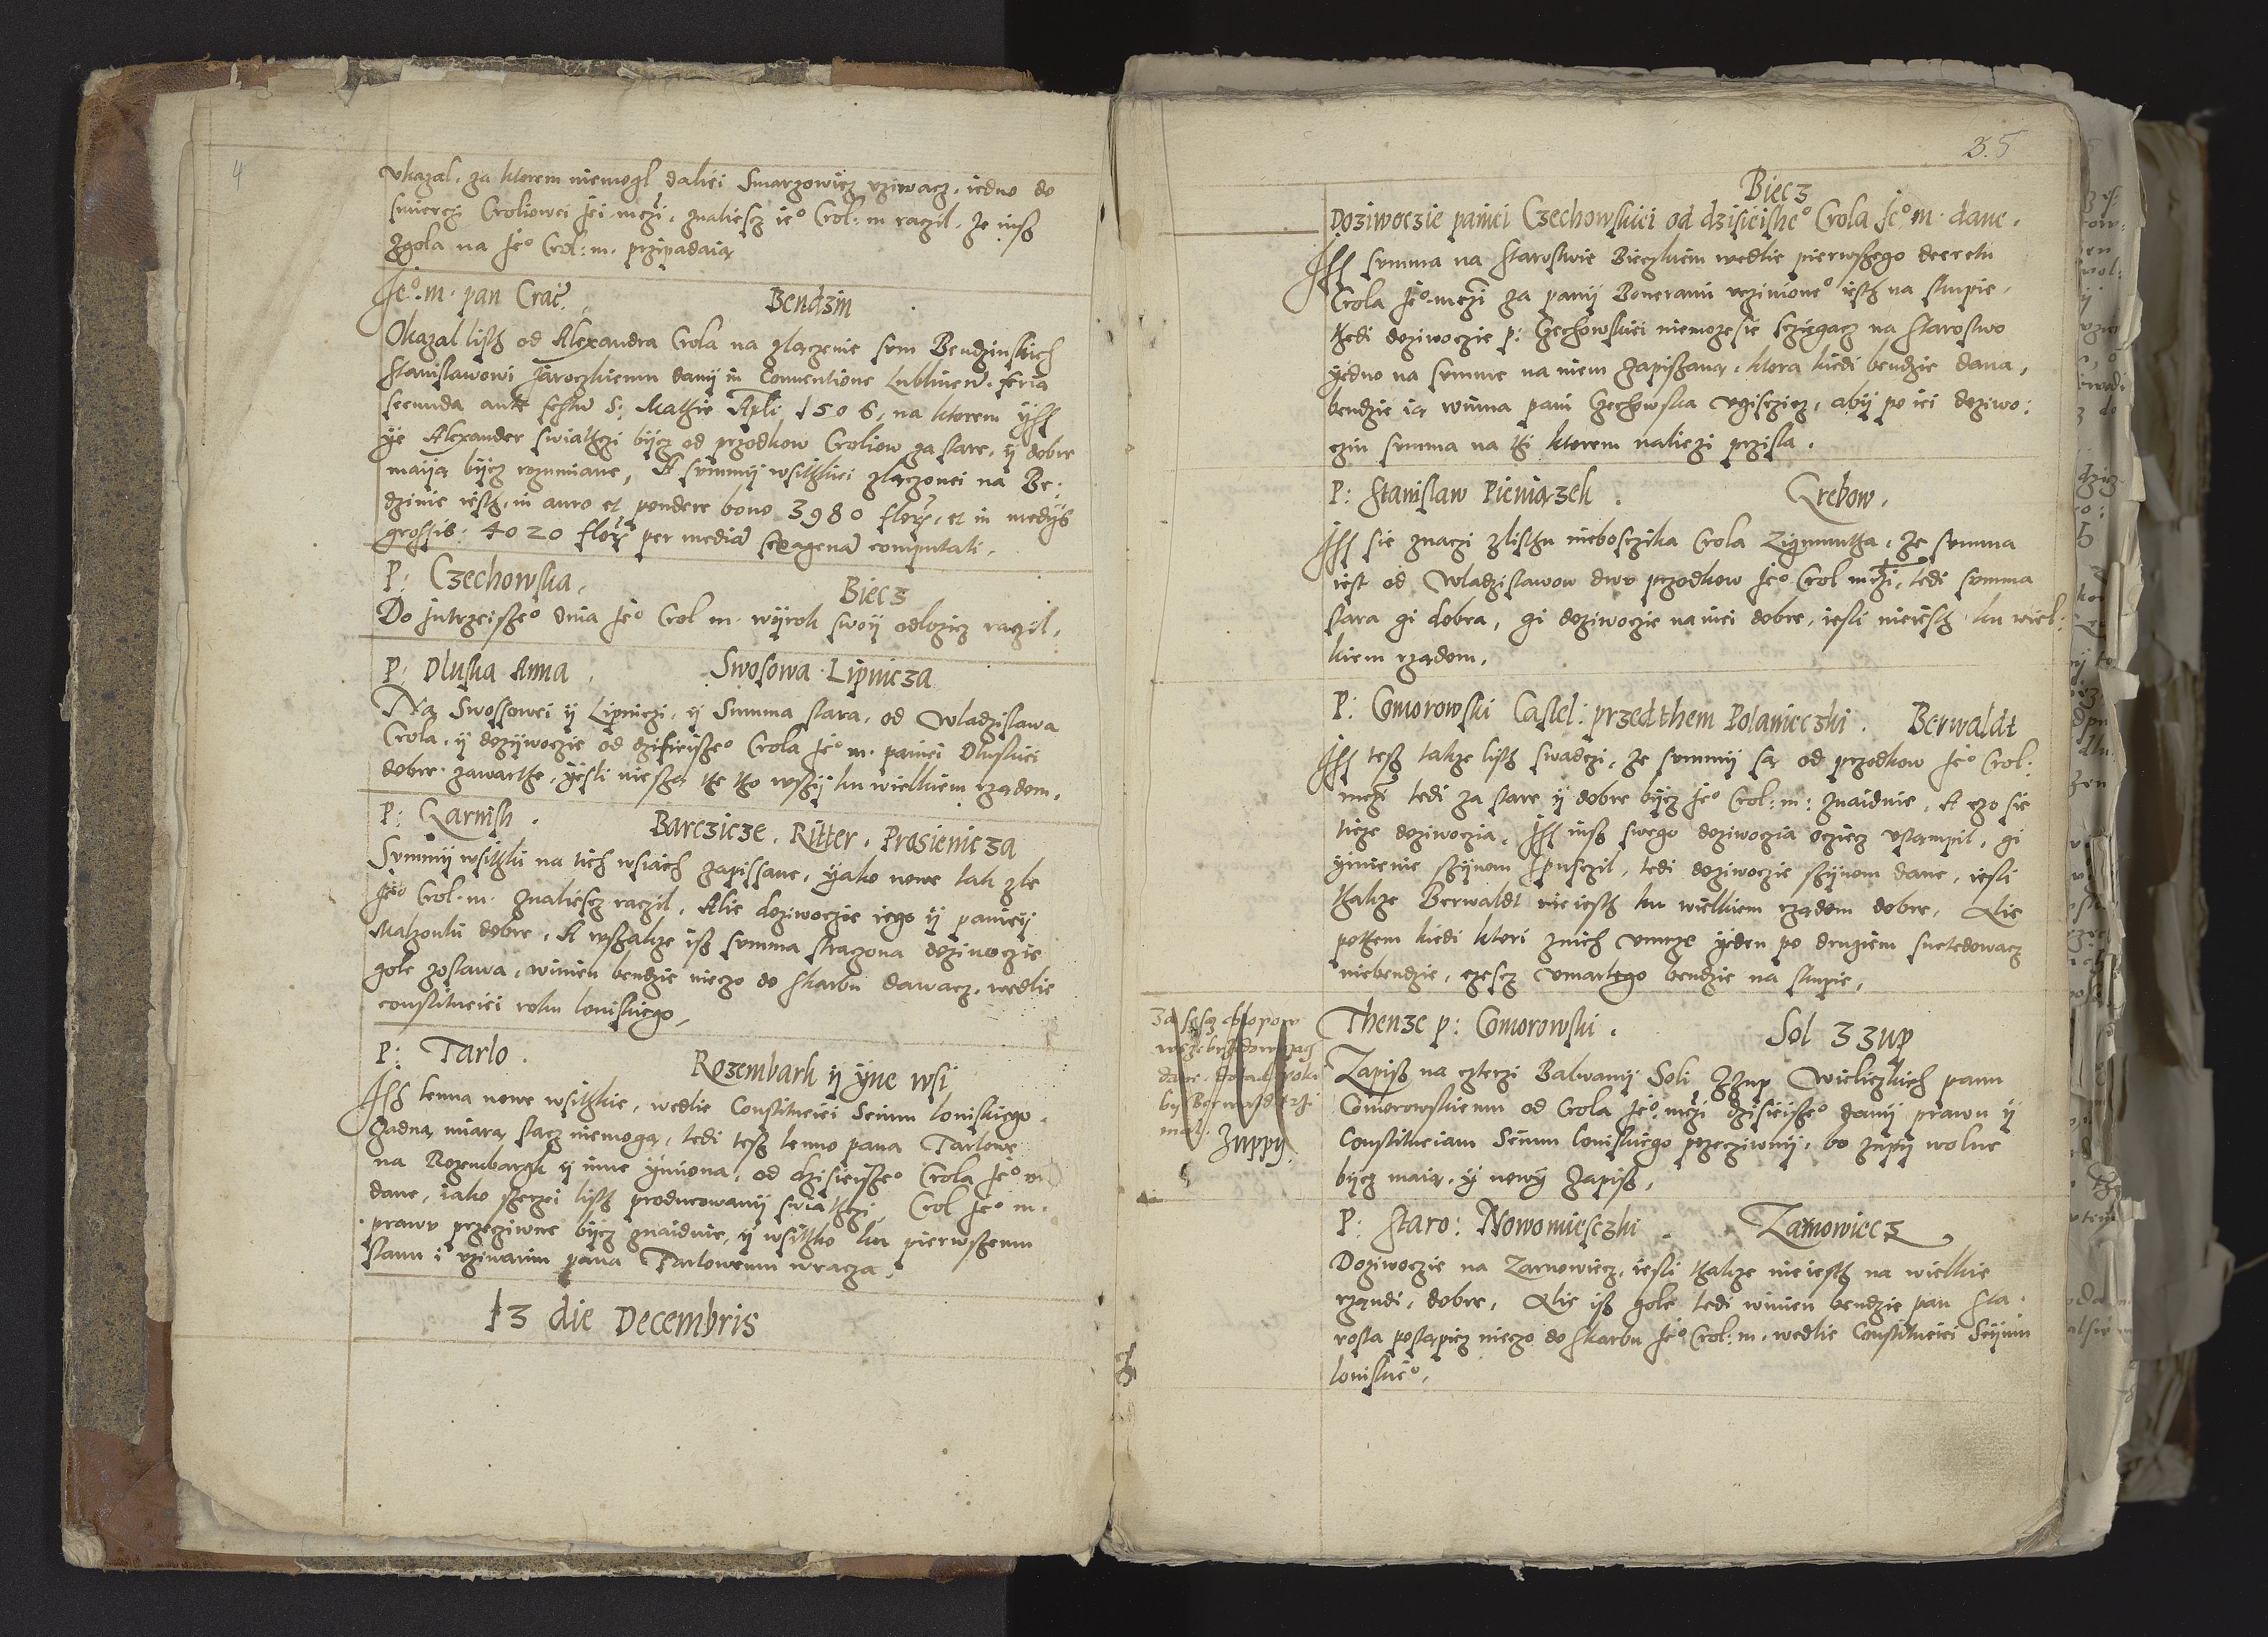 4
vkazal, za ktorem niemogl daliei Smarzowicz vziwacz, iedno do
smierczi Croliowei Jei mczi, znaliescz ie° Crol: m raczil, że iusz
zgola na Je° Crol: m. przipadaią
Je°. m. pan Crac̃. Bendzin
Okazal listh od Alexandra Crola na zlączenie sum Bendzinskich
Stanislawowi Jaroczkiemu danij in Conuentione Lublinen̄. feria
secunda ante festū S: Mathie Apli 1506, na ktorem ijsz
ije Alexander swiathczi bijcz od przodkow Croliow za stare, ij dobre
maiją bijcz rozumiane, A summij wsithkiei zlączonei na Be:
dzinie iesth, in auro et pondere bono 3980 flor̃, et in medijs
grossis: 4020 flor̃ per mediā sexagenā computati.
P: Czechowska, Biecz
Do Jutrzeisze° dnia Je° Crol m. wijrok swoij odlozicz raczil,
P: Dluska Anna, Swosowa Lipnicza
Na Swossowei ij Lipniczi, ij Summa stara, od Wladzislawa
Crola, ij doziwoczie od dzisieisze° Crola Je° m. paniei Dluskiei
dobre zawarthe, ijesli nie są the tho wszij ku wielkiem rządom,
P: Garnish. Barczicze. Ritter. Prosienicza
Summij wsithki na tich wsiach zapissane, ijako nowe tak zle
Je° Crol. m. znaliescz raczil, Alie doziwoczie iego ij panieij
Malzonki dobre, A wszakze isz summa straczona doziwoczie
gole zostawa, winien bendzie nieczo do skarbu dawacz, wedlie
constituciei roku lonskiego,
P: Tarlo. Rozembark ij ijne wsi
Jsz lenna nowe wsithkie, wedlie Constituciei Seimu lonskiego.
zadną miarą stacz niemogą, tedi tesz lenno pana Tarlowe
na Rozembargk ij inne ijmiona, od dzisieisze° Crola Je° m
dane, iako szerzei listh producowanij swiathczi, Crol Je° m.
prawu przeciwne bijcz znaiduie, ij wsithko ku pierwszemu
stanu i vziwaniu pana Tarlowemu wracza,
13 die Decembris
3.5
Biecz
Doziwoczie paniei Czechowskiei od dzisieishe° Crola Je° m. dane.
Jsz summa na Starostwie Bieczkiem wedlie pierwszego decretu
Crola Je° mczi za panij Boneranii vczinione° iesth na skupie,
thedi doziwoczie p: Czechowskiei niemoze sie sczięgacz na starostwo
ijedno na summe na niem zapiszaną, ktora kiedi bendzie dana,
bendzie ią winna pani Czechowska vgisczicz, abij po iei doziwo:
cziu summa na thi ktorem naliezi przisla.
P: Stanislaw Pieniązek. Grebow.
Jsz sie znaczi zlisthu nieboscika Crola Zigmuntha, że summa
iest od Wladzislawow dwu przodkow Je° Crol mczi, tedi summa
stara gi dobra, gi doziwoczie na niei dobre, iesli nie iesth ku wiel:
kiem rządom,
P: Comorowski Castel: przedthem Polanieczki. Berwaldt
Jsz tesz takze listh swadczi, że summij są od przodkow Je° Crol:
mczi tedi za stare ij dobre bijcz Je° Crol: m: znaiduie, A czo sie
ticze doziwoczia, Jsz iusz swego doziwoczia ocziecz vstampil, gi
ijmienie szijnom spusczil, tedi doziwoczie szijnom dane, iesli
thakze Berwaldt nie iesth ku wielkiem rządom dobre, Alie
pothem kiedi ktori znich vmrze ijeden po drugiem succedowacz
niebendzie, czescz vmarlego bendzie na skupie,
Thenze p: Comorowski. Sol z zup
Zapisz na czterzi Balwanij Soli z zup Wieliczkich panu
Comorowskiemu od Crola Je° mczi dzisieisze° danij prawu ij
Constituciam Seimu lonskiego przecziwnij, bo zupij wolne
bijcz maią, ij nowij zapisz,
Zuppy
P: Staro: Nowomiesczki. Zarnowiecz
Doziwoczie na Zarnowiecz, iesli thakze nie iesth na wielkie
rzandi, dobre, Alie isz gole tedi winien bendzie pan Sta:
rosta postąpicz nieczo do skarbu Je° Crol: m. wedlie Constituciei Seijmu
lonskie°,